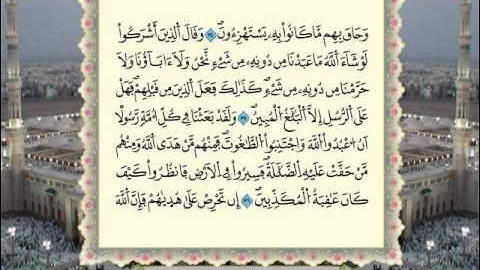 وَحَاقَ بِهِم مَّا كَانُوا۟ بِهِۦ يَسْتَهْزِءُونَ ۝٣٤ وَقَالَ ٱلَّذِينَ أَشْرَكُوا۟
لَوْ شَآءَ ٱللَّهُ مَا عَبَدْنَا مِن دُونِهِۦ مِن شَىْءٍ نَّحْنُ وَلَآ ءَابَآؤُنَا وَلَا
حَرَّمْنَا مِن دُونِهِۦ مِن شَىْءٍ كَذَٰلِكَ فَعَلَ ٱلَّذِينَ مِن قَبْلِهِمْ فَهَلْ
عَلَى ٱلرُّسُلِ إِلَّا ٱلْبَلَٰغُ ٱلْمُبِينُ ۝٣٥ وَلَقَدْ بَعَثْنَا فِى كُلِّ أُمَّةٍ رَّسُولًا
أَنِ ٱعْبُدُوا۟ ٱللَّهَ وَٱجْتَنِبُوا۟ ٱلطَّٰغُوتَ فَمِنْهُم مَّنْ هَدَى ٱللَّهُ وَمِنْهُم
مَّنْ حَقَّتْ عَلَيْهِ ٱلضَّلَٰلَةُ فَسِيرُوا۟ فِى ٱلْأَرْضِ فَٱنظُرُوا۟ كَيْفَ
كَانَ عَٰقِبَةُ ٱلْمُكَذِّبِينَ ۝٣٦ إِن تَحْرِصْ عَلَىٰ هُدَىٰهُمْ فَإِنَّ ٱللَّهَ